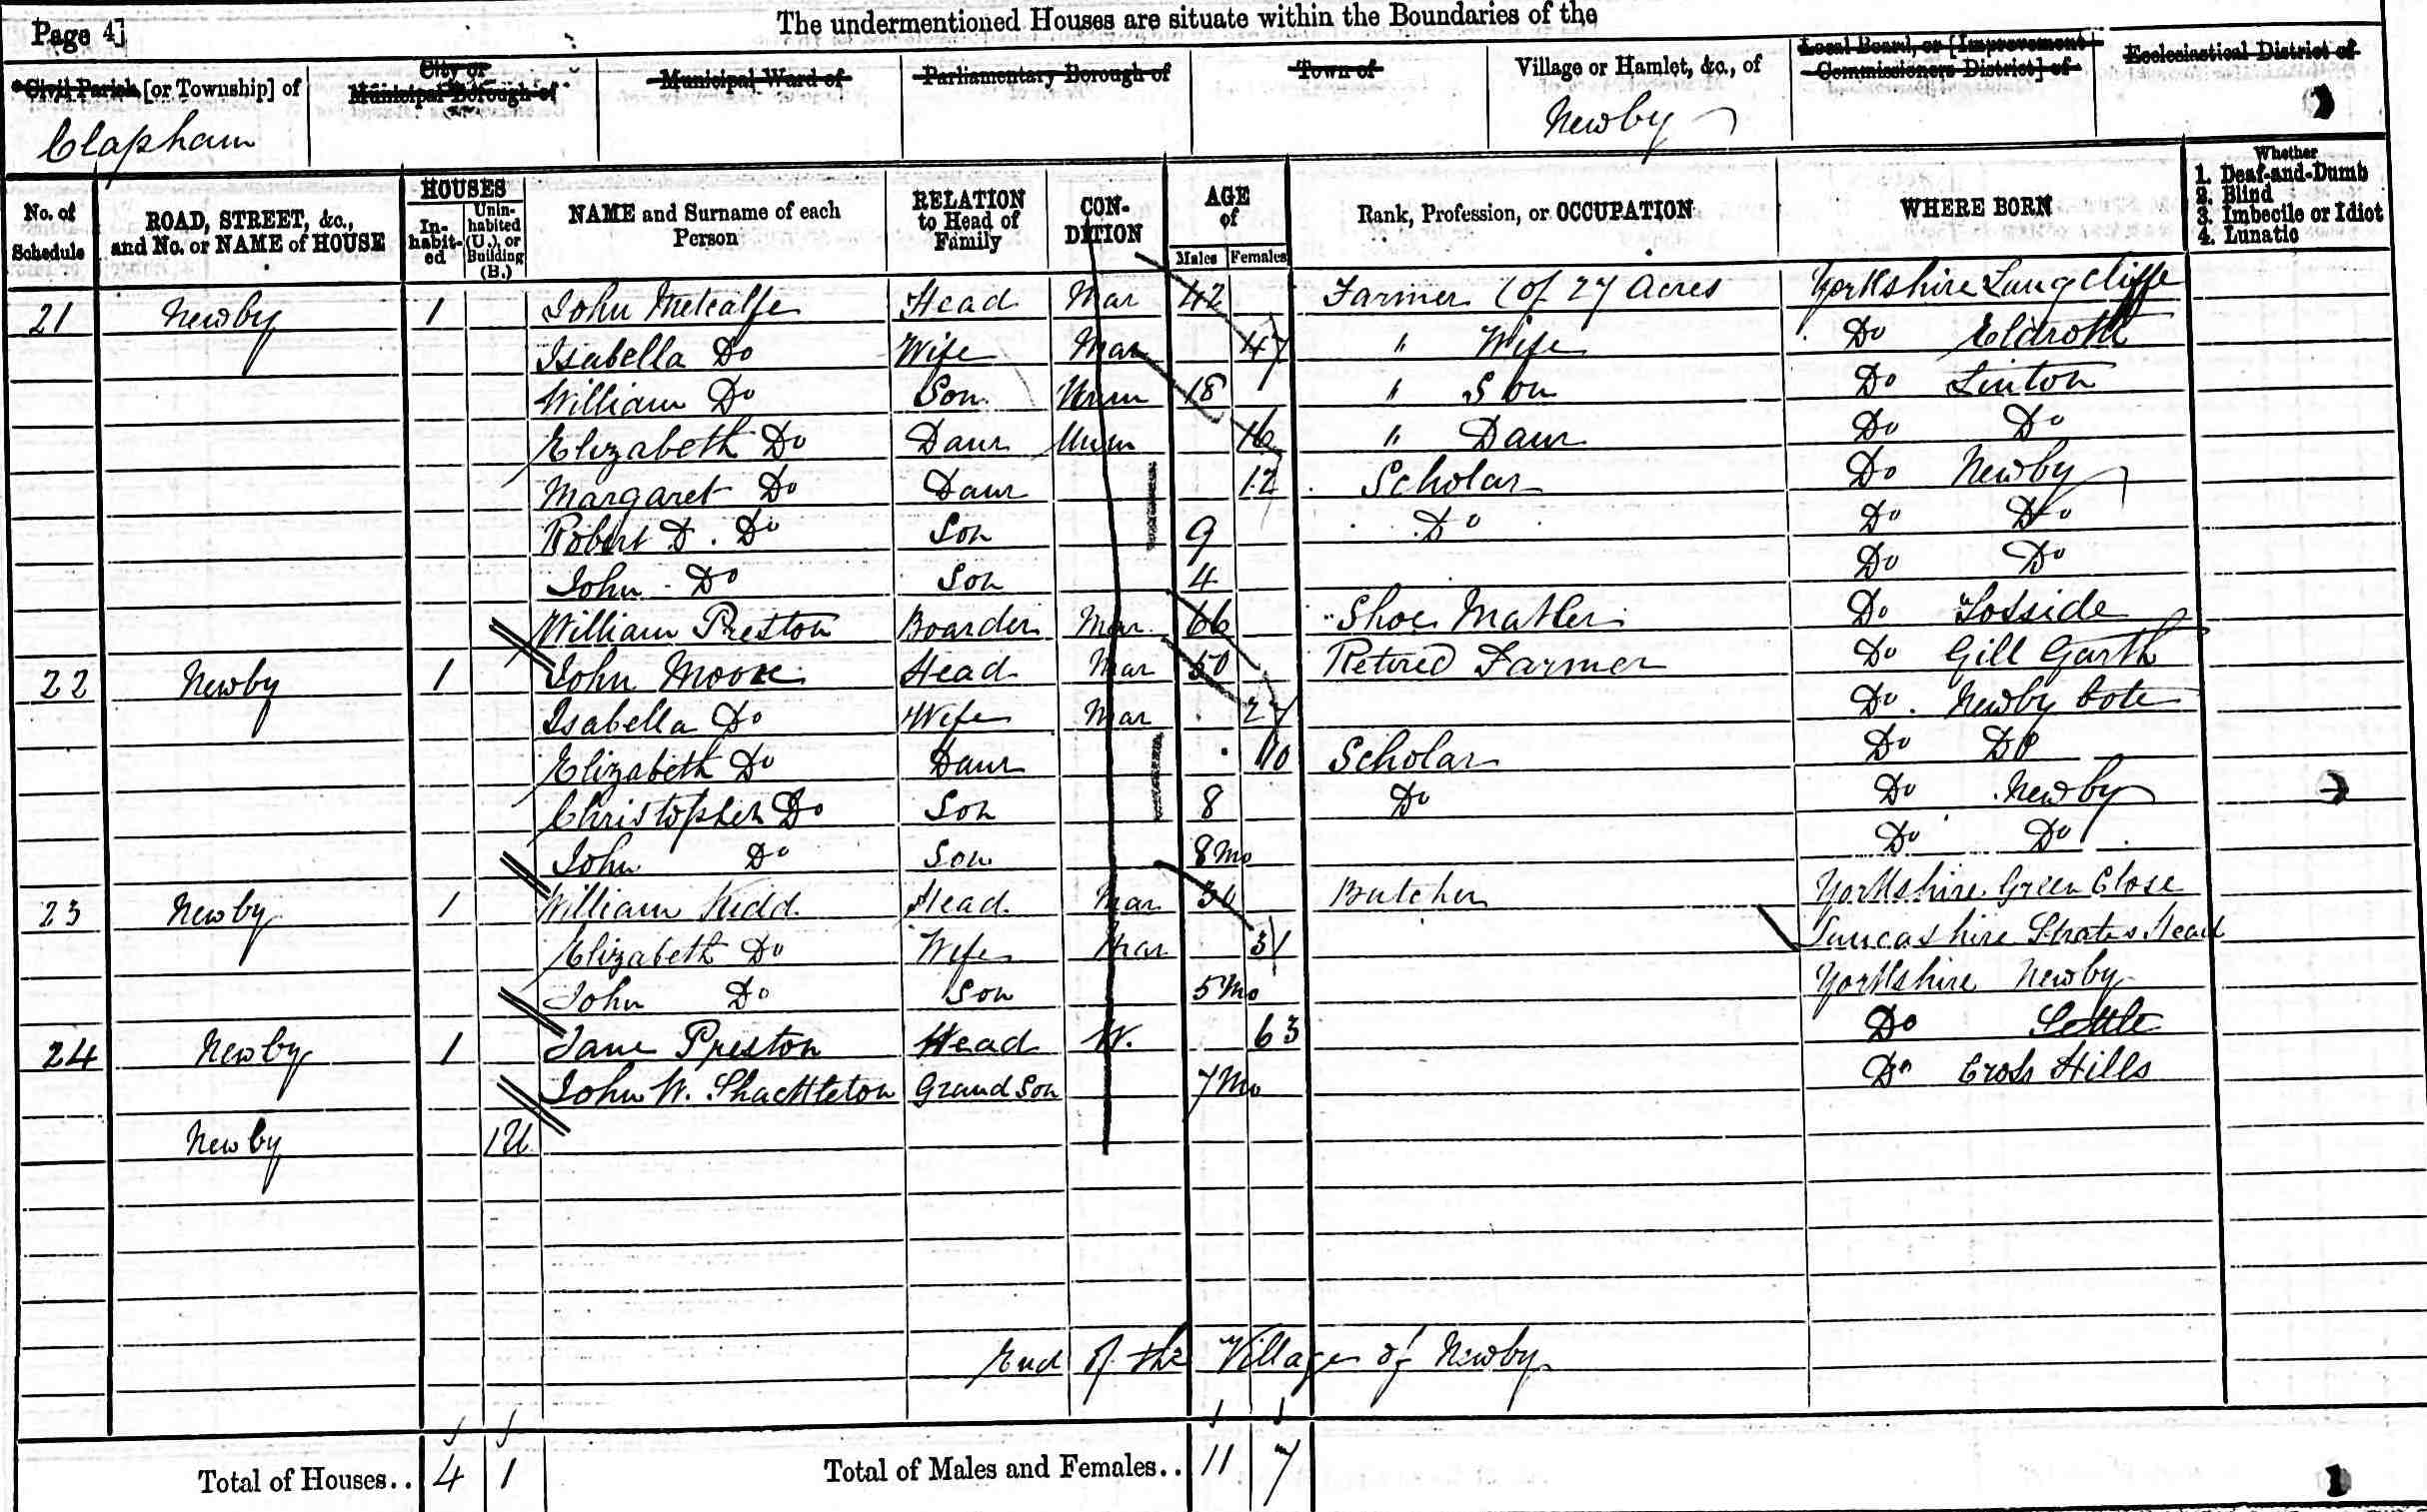 Page 4]
The undermentioned Houses are situate within the Boundaries of the
*Civil Parish [or Township] of
City or Municipal Borough of
Municipal Ward of
Parliamentary Borough of
Town of
Village or Hamlet, &c., of
Local Board, or [Improvement Commissioners District] of
Ecclesiastical District of
Clapham
Newby
No. of Schedule
ROAD, STREET, &c., and No. or NAME of HOUSE
HOUSES
In-habit-ed
Unin-habited (U.), or Building (B.)
NAME and Surname of each Person
RELATION to Head of Family
CON-DITION
AGE of
Males
Females
Rank, Profession, or OCCUPATION
WHERE BORN
Whether
1. Deaf-and-Dumb
2. Blind
3. Imbecile or Idiot
4. Lunatic
21 Newby 1 John Metcalfe Head Mar 42 Farmer (of 27 Acres Yorkshire Langcliffe
Isabella Do Wife Mar 47 " Wife Do Eldroth
William Do Son Unm 18 " Son Do Linton
Elizabeth Do Daur Unm 16 " Daur Do Do
Margaret Do Daur 12 Scholar Do Newby
Robert D. Do Son 9 Do Do Do
John Do Son 4 Do Do
William Preston Boarder Mar 66 Shoe Maker Do Tosside
22 Newby 1 John Moore Head Mar 50 Retired Farmer Do Gill Garth
Isabella Do Wife Mar 27 Do Newby Cote
Elizabeth Do Daur 10 Scholar Do Do
Christopher Do Son 8 Do Do Newby
John Do Son 8 Mo Do Do
23 Newby 1 William Kidd Head Mar 30 Butcher Yorkshire Green Close
Elizabeth Do Wife Mar 31 Lancashire Head
John Do Son 5 Mo Yorkshire Newby
24 Newby 1 Jane Preston Head W. 63 Do Settle
John W. Shackleton Grand Son 7 Mo Do Cross Hills
Newby 1U
End of the Village of Newby
Total of Houses.. 4 1 Total of Males and Females.. 11 7